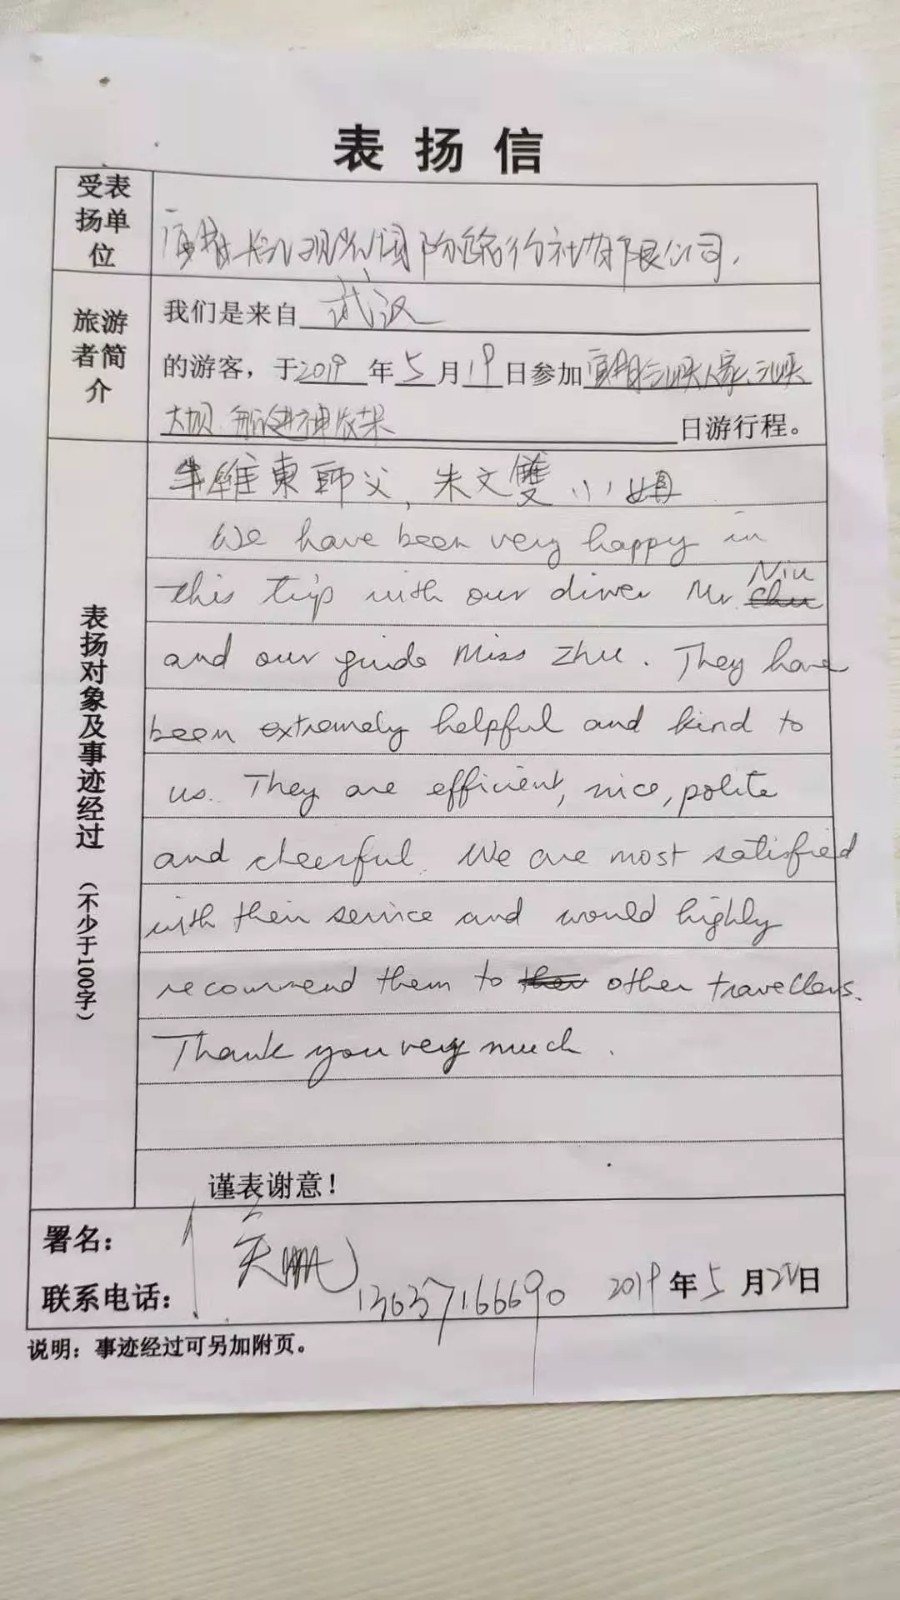 表扬信
受表扬单位
国际旅行社有限公司.
旅游者简介
我们是来自 武汉
的游客，于2019年5月19日参加宜昌三峡人家、三峡
大坝 神农架 日游行程。
表扬对象及事迹经过（不少于100字）
牛維東師父, 朱文雙小姐
We have been very happy in
this trip with our driver Mr Niu
and our guide Miss Zhu. They have
been extremely helpful and kind to
us. They are efficient, nice, polite
and cheerful. We are most satisfied
with their service and would highly
recommend them to other travellers.
Thank you very much.
谨表谢意！
署名：
联系电话： 13637166690 2019年5月 日
说明：事迹经过可另加附页。